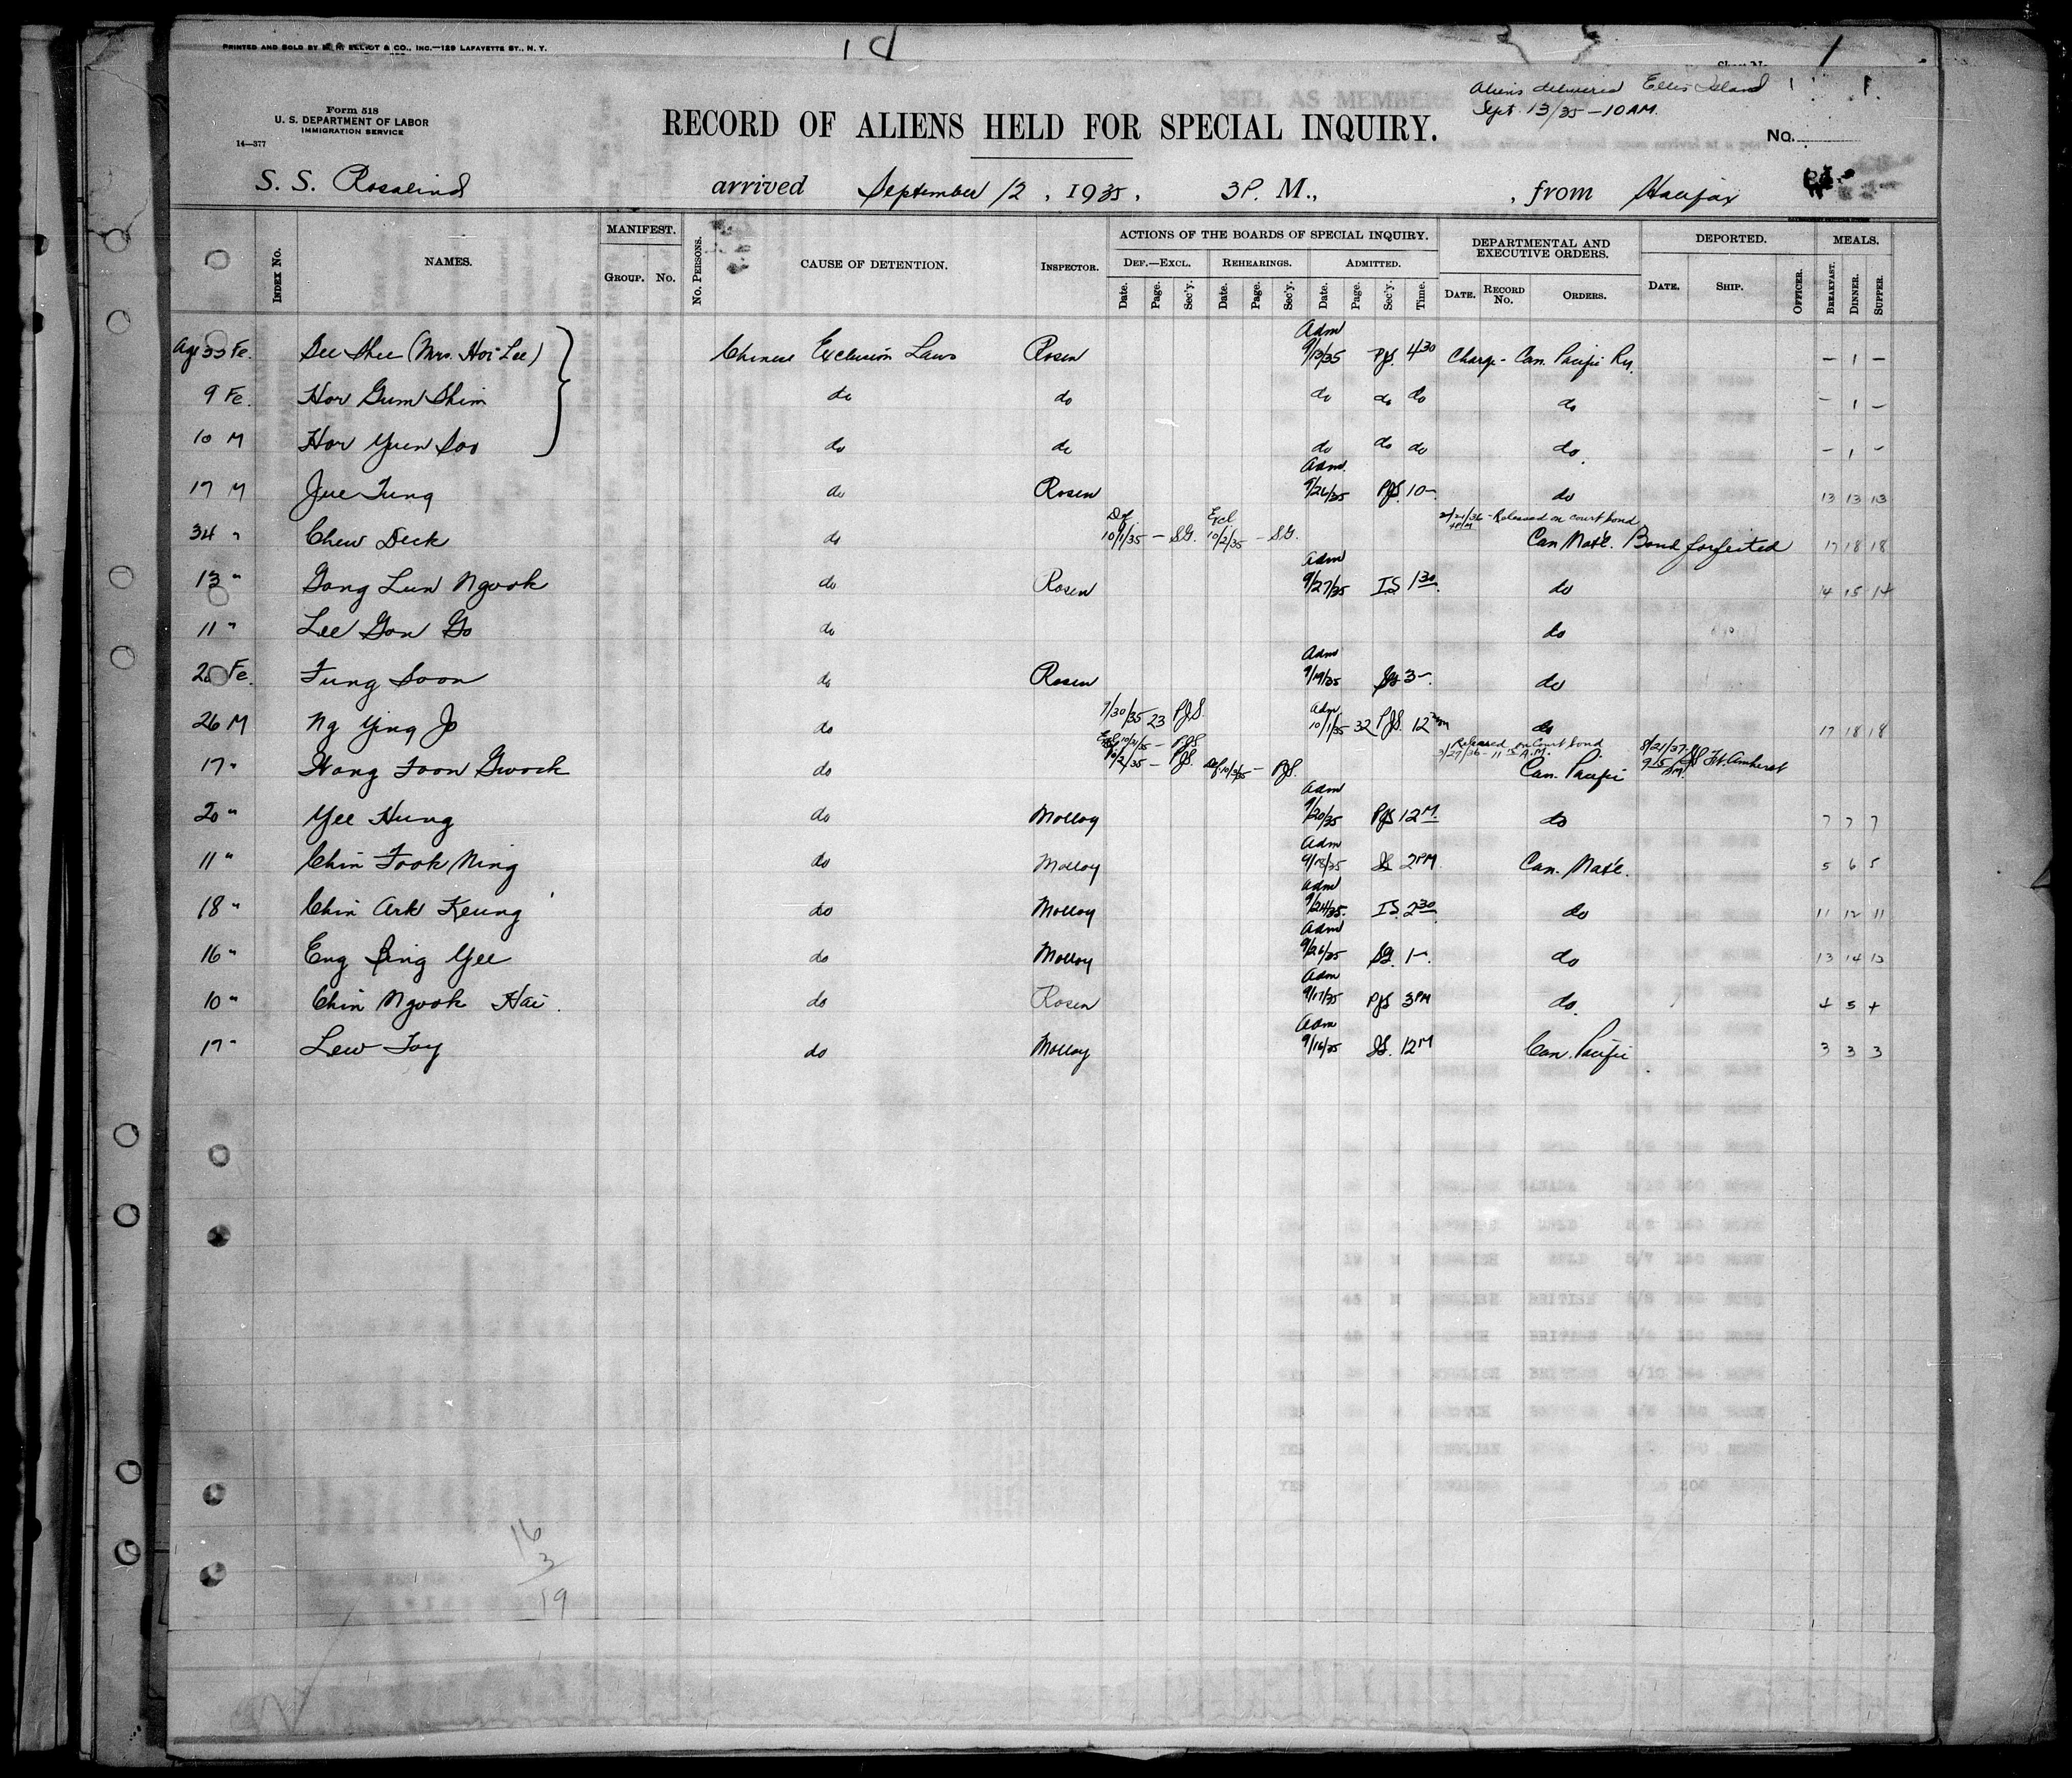 PRINTED AND SOLD BY M. H. ELLIOT & CO., INC.—129 LAFAYETTE ST., N. Y.
Aliens delivered Ellis Island
Sept. 13/35 — 10 AM.
Form 518
U. S. DEPARTMENT OF LABOR
IMMIGRATION SERVICE
14—377
RECORD OF ALIENS HELD FOR SPECIAL INQUIRY.
No.
S. S. Rosalind arrived September 12, 1935, 3 P. M., from Halifax
INDEX No. NAMES. MANIFEST. GROUP. No. No. PERSONS. CAUSE OF DETENTION. INSPECTOR. ACTIONS OF THE BOARDS OF SPECIAL INQUIRY. DEPARTMENTAL AND EXECUTIVE ORDERS. DEPORTED. MEALS.
DEF.—EXCL. REHEARINGS. ADMITTED.
Date. Page. Sec'y. Date. Page. Sec'y. Date. Page. Sec'y. Time. DATE. RECORD No. ORDERS. DATE. SHIP. OFFICER. BREAKFAST. DINNER. SUPPER.
Age 33 Fe. See Shee (Mrs. Hoi Lee) Chinese Exclusion Laws Rosen Adm 9/13/35 PJS. 4 30 Charge - Can. Pacific Ry. — 1 —
9 Fe. Hor Gum Shim do do do do do do - 1 -
10 M Hor Yuen Soo do do do do do do. - 1 -
17 M Jue Tung do Rosen Adm. 9/26/35 PJS. 10- do 13 13 13
34 " Chew Deck do Def 10/1/35 — S.G. Excl 10/2/35 — S.G. 2/21/36 4PM - Released on court bond Can Nat'l. Bond forfeited 17 18 18
13 " Gong Lun Ngook do Rosen Adm 9/27/35 IS 1 30. do 14 15 14
11 " Lee Gon Go do do
28 Fe. Fung Soon do Rosen Adm 9/19/35 3- do
26 M Ng Ying Jo do 9/30/35 23 PJS. Adm 10/1/35 32 PJS. 12 do 17 18 18
17 " Wong Foon Gwock do 10/2/35 — PJS. Def. 10/3/35 — PJS. Released on Court bond 3/27/36 - 11 A.M. Can. Pacific 8/21/37 9 15 AM. Ft. Amherst
20 " Yee Hung do Molloy Adm 9/20/35 PJS 12 M. do 7 7 7
11 " Chin Fook Ning do Molloy Adm 9/18/35 2 PM. Can. Nat'l. 5 6 5
18 " Chin Ark Keung do Molloy Adm 9/24/35. IS. 2 30 do 11 12 11
16 " Eng Sing Yee do Molloy Adm 9/26/35 SG. 1-. do 13 14 13
10 " Chin Ngook Hai. do Rosen Adm 9/17/35 PJS 3 PM do. 4 5 4
17 " Lew Toy do Molloy Adm 9/16/35 12 M Can. Pacific. 3 3 3
16
3
19